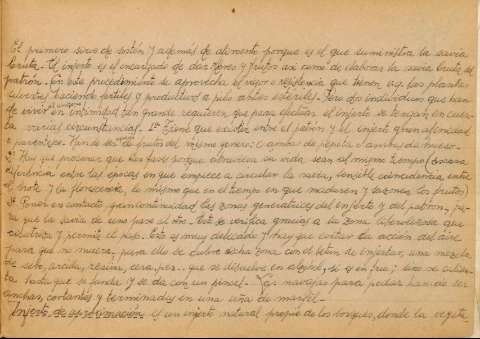 El primero sirve de sostén y además de alimento porque es el que suministra la savia
bruta. El injerto es el encargado de dar flores y frutos así como de elaborar la savia bruta del
patrón. Con este procedimiento se aprovecha el vigor o resistencia que tienen v.g. las plantas
silvestres haciendo fértiles y productivos a pies antes estériles. Pero dos individuos que han
de vivir en intimidad tan grande requieren que para efectuar el injerto se tengan en cuen-
ta varias circunstancias. 1ª Tiene que existir entre el patrón y el injerto gran afinidad
o parentesco. Han de ser de frutos del mismo género: o ambos de pepita o ambos de hueso.
2ª Hay que procurar que las fases porque atraviesa su vida sean al mismo tiempo (escasa
diferencia entre las épocas en que empiece a circular la savia, sensible coincidencia entre
el brote y la florescencia, lo mismo que en el tiempo en que maduren y sazonen los frutos)
3ª Poner en contacto y en continuidad las zonas generatrices del injerto y del patrón, pa-
ra que la savia de uno pase al otro. Esto se verifica gracias a la zona
cicatriza y permite el paso. Esto es muy delicado y hay que evitar la acción del aire
para que no muera, para ello se cubre dicha zona con el betún de injertar, una mezcla
de sebo, arcilla, resina, cera, pez.. que se disuelve en alcohol, si es en frío; sino se calien-
ta hasta que se funda y se da con un pincel. Las navajas para podar han de ser
anchas, cortantes y terminadas en una uña de marfil.
Injerto de aproximación es un injerto natural propio de los bosques, donde la vegeta-